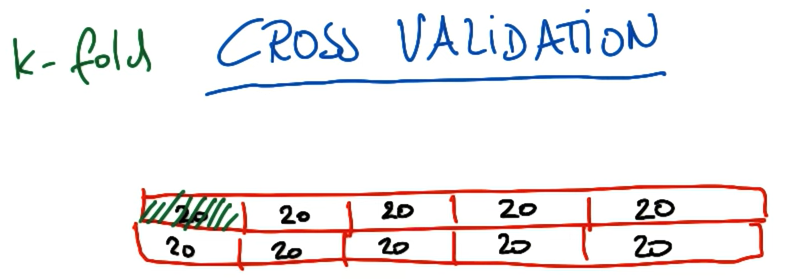 k-fold CROSS VALiDATiON
20 20 20 20 20
20 20 20 20 20